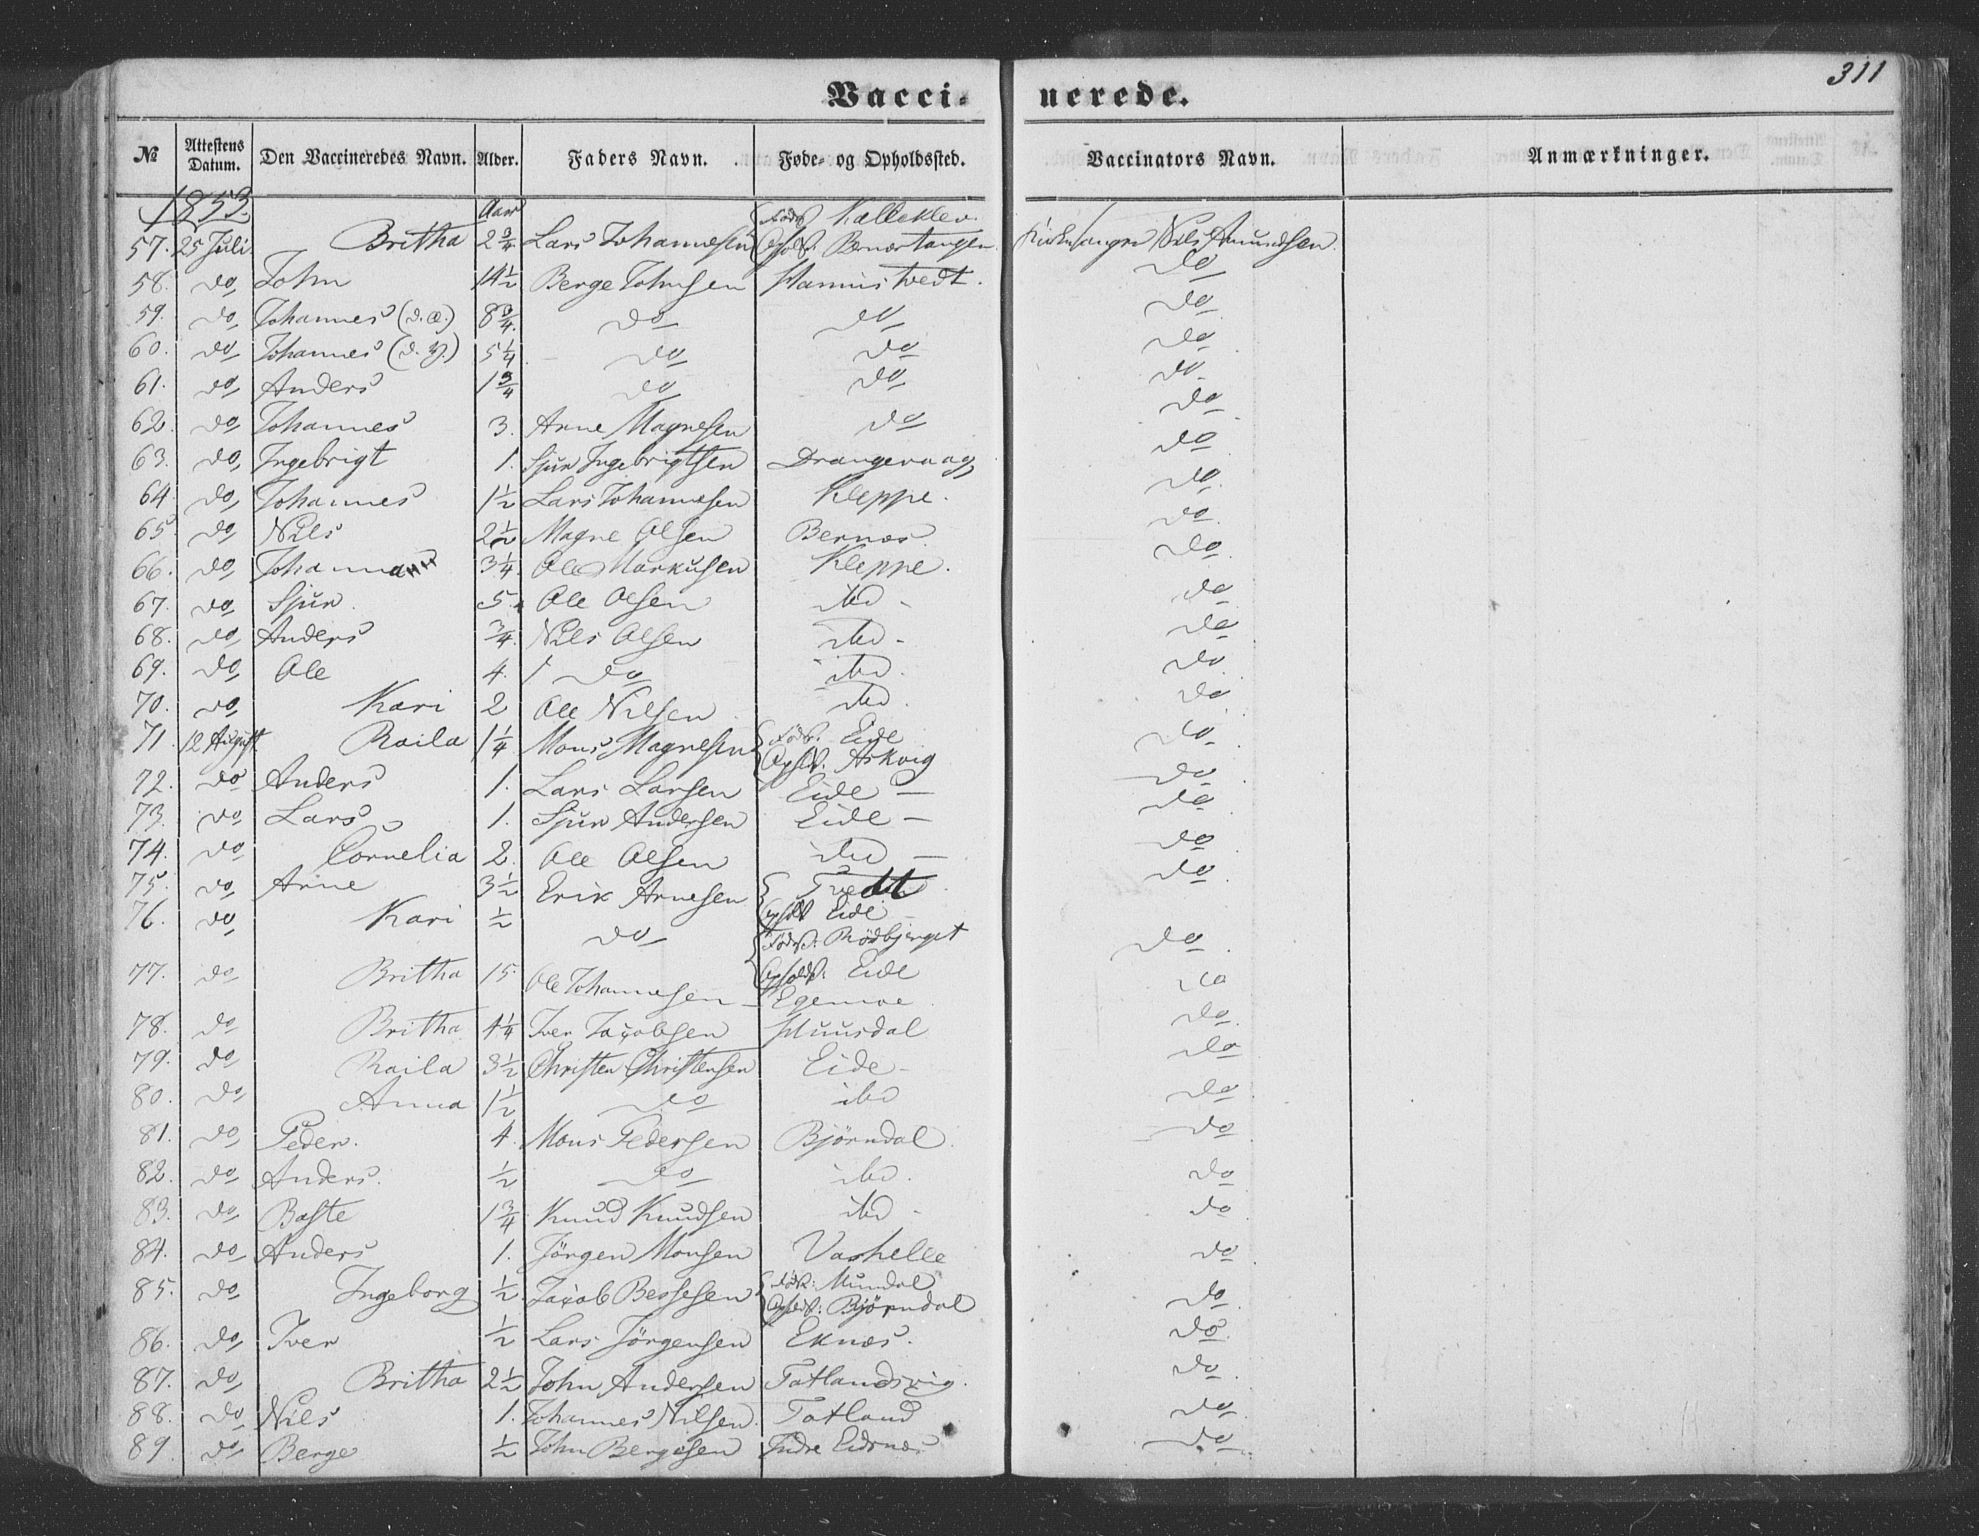 311
Vaccinerede.
№ Attestens Datum. Den Vaccineredes Navn. Alder. Faders Navn. Føde- og Opholdssted. Vaccinators Navn. Anmærkninger.
1853. Aar Föds
57. 25 Juli Britha 2 3/4 Lars Johannesen Nils Amundsen.
58. do John 14 1/2 Berge Johnsen Hannistvedt. do
59. do Johannes (d. æ.) 8 3/4 do do do
60. do Johannes (d. y.) 5 1/4 do do do
61. do Anders 1 3/4 do do do
62. do Johannes 3. Arne Magnesen do do
63. do Ingebrigt 1. Sjur Ingebrigtsen Drangevaag do
64. do Johannes 1 1/2 Lars Johannesen Kleppe. do
65. do Nils 2 1/2 Magne Olsen Bernæs do
66. do 3 1/4 Ole Markusen Kleppe. do
67. do Sjur. 5. Ole Olsen ibd - do
68. do Anders 3/4. Nils Olsen ibd - do
69. do Ole 4. do ibd. do
70. do Kari 2 Ole Nilsen ibd. do
71. 12 August Raila 1 1/4 Mons Magnesen Föds. Eide do
Opld. Askvig
72. do Anders 1. Lars Larsen Eide do
73. do Lars 1. Sjur Andersen Eide - do
74. do Cornelia 2. Ole Olsen ibd - do
75. do Arne 3 1/2 Erik Arnesen Tvedt do
Eide
76. do Kari 1/2 do Föds: Rödbjerget do
Eide
77. do Britha 15. Ole Johannesen - Egemoe do
78. do Britha 4 1/4 Iver Jacobsen Huusdal do
79. do Raila 3 1/2 Christen Christensen Eide - do
80. do Anna 1 1/2 do ibd do
81. do Peder. 4. Mons Pedersen Björndal. do
82. do Anders. 1/2 do ibd. do
83. do Baste 1 3/4 Knud Knudsen ibd - do
84. do Anders 1. Jörgen Monsen Vashelle do
85. do Ingeborg 1/2 Jacob Bessesen Föds: Mundal do
Björndal
86. do Iver 1/2 Lars Jörgensen Eknæs. do
87. do Britha 2 1/2 John Andersen Tatlandsvig. do
88. do Nils 1. Johannes Nilsen. Tatland do
89. do Berge 1/2 John Bergesen Indre Eidsnæs do